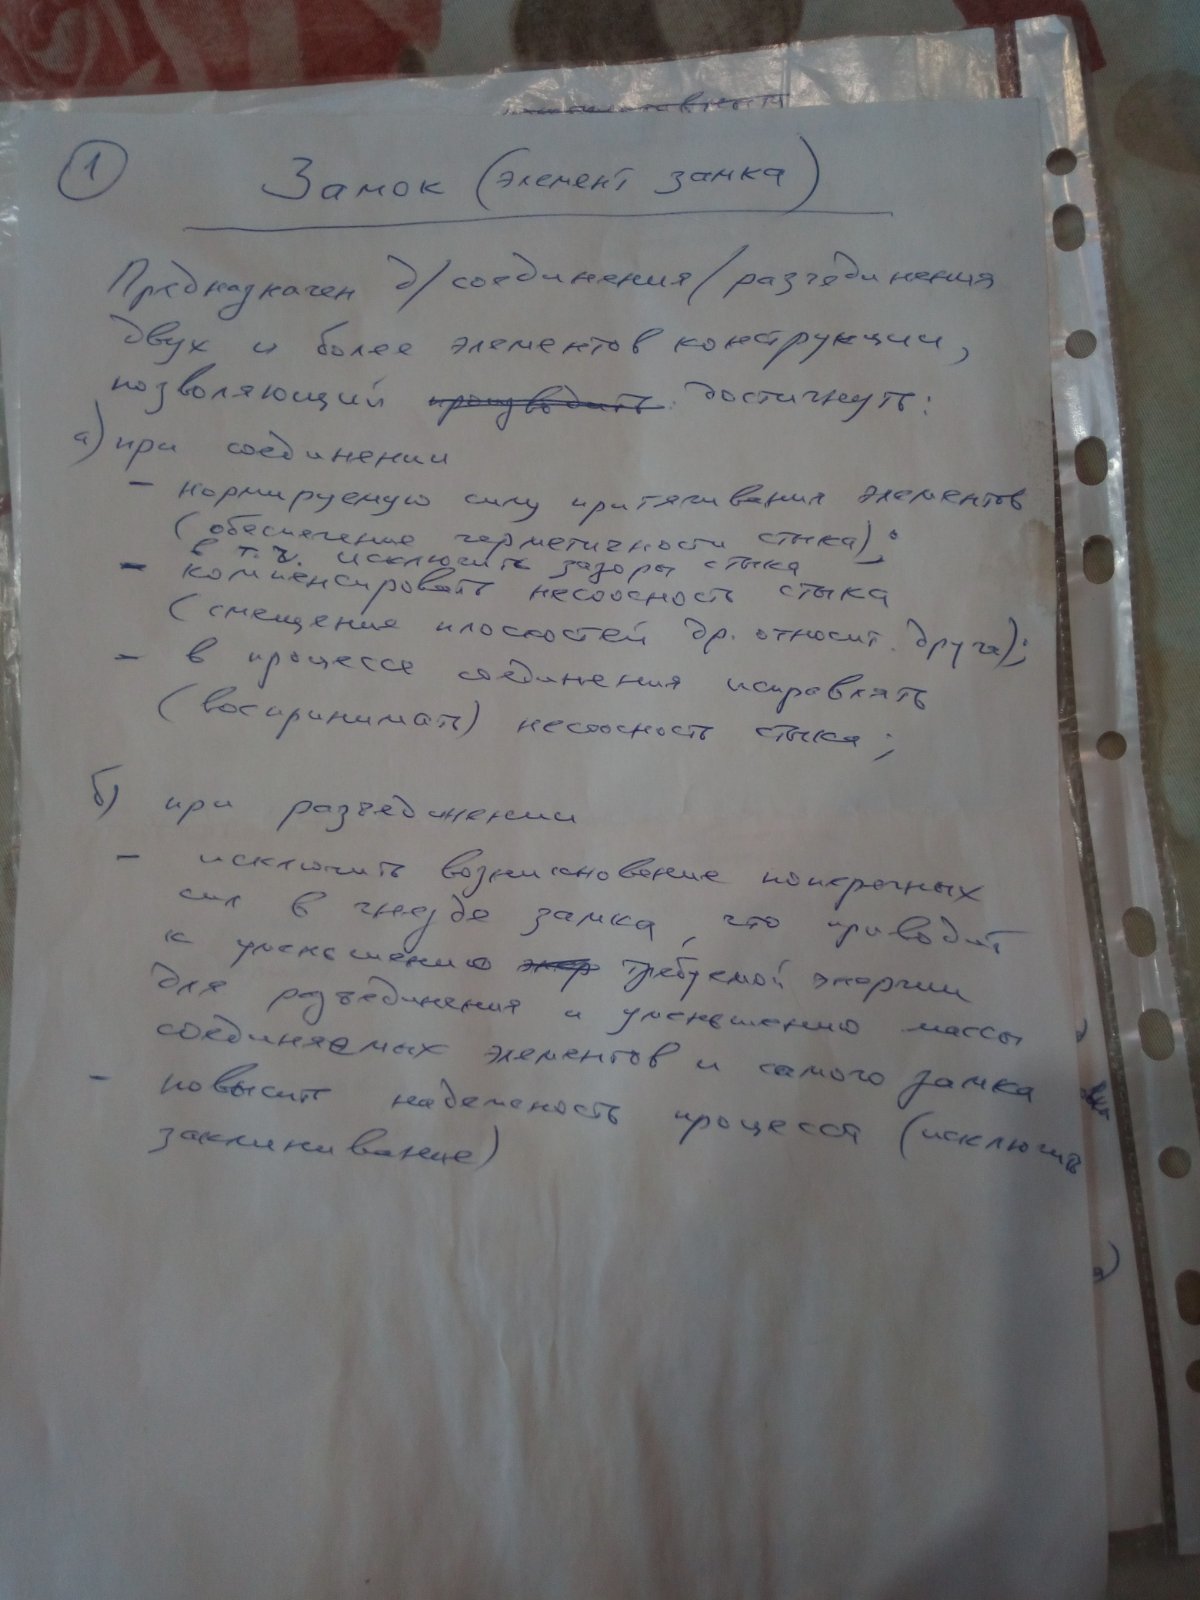 1
Замок (элемент замка)
Предназначен д/соединения/разъединения
двух и более элементов конструкции,
позволяющий производить достигнуть:
а) при соединении
- нормируемую силу притягивания элементов
(обеспечение герметичности стыка);
в т.ч. исключить зазоры стыка
- компенсировать несоосность стыка
(смещение плоскостей др. относит. друга);
- в процессе соединения исправлять
(воспринимать) несоосность стыка;
б) при разъединении
- исключить возникновение поперечных
сил в гнезде замка, что приводит
к уменьшению энер требуемой энергии
для разъединения и уменьшению массы
соединяемых элементов и самого замка
- повысить надежность процесса (исключить
заклинивание)